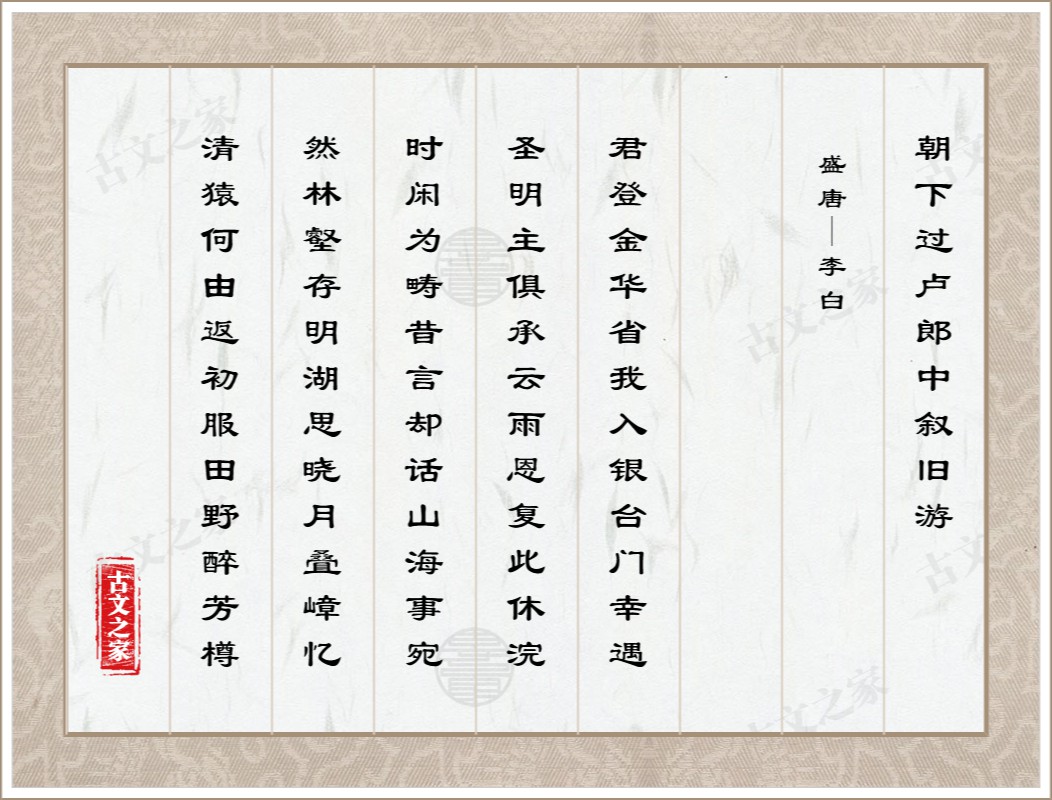 朝下过卢郎中叙旧游
盛唐—李白
君登金华省我入银台门幸遇
圣明主俱承云雨恩复此休浣
时闲为畴昔言却话山海事宛
然林壑存明湖思晓月叠嶂忆
清猿何由返初服田野醉芳樽
古文之家